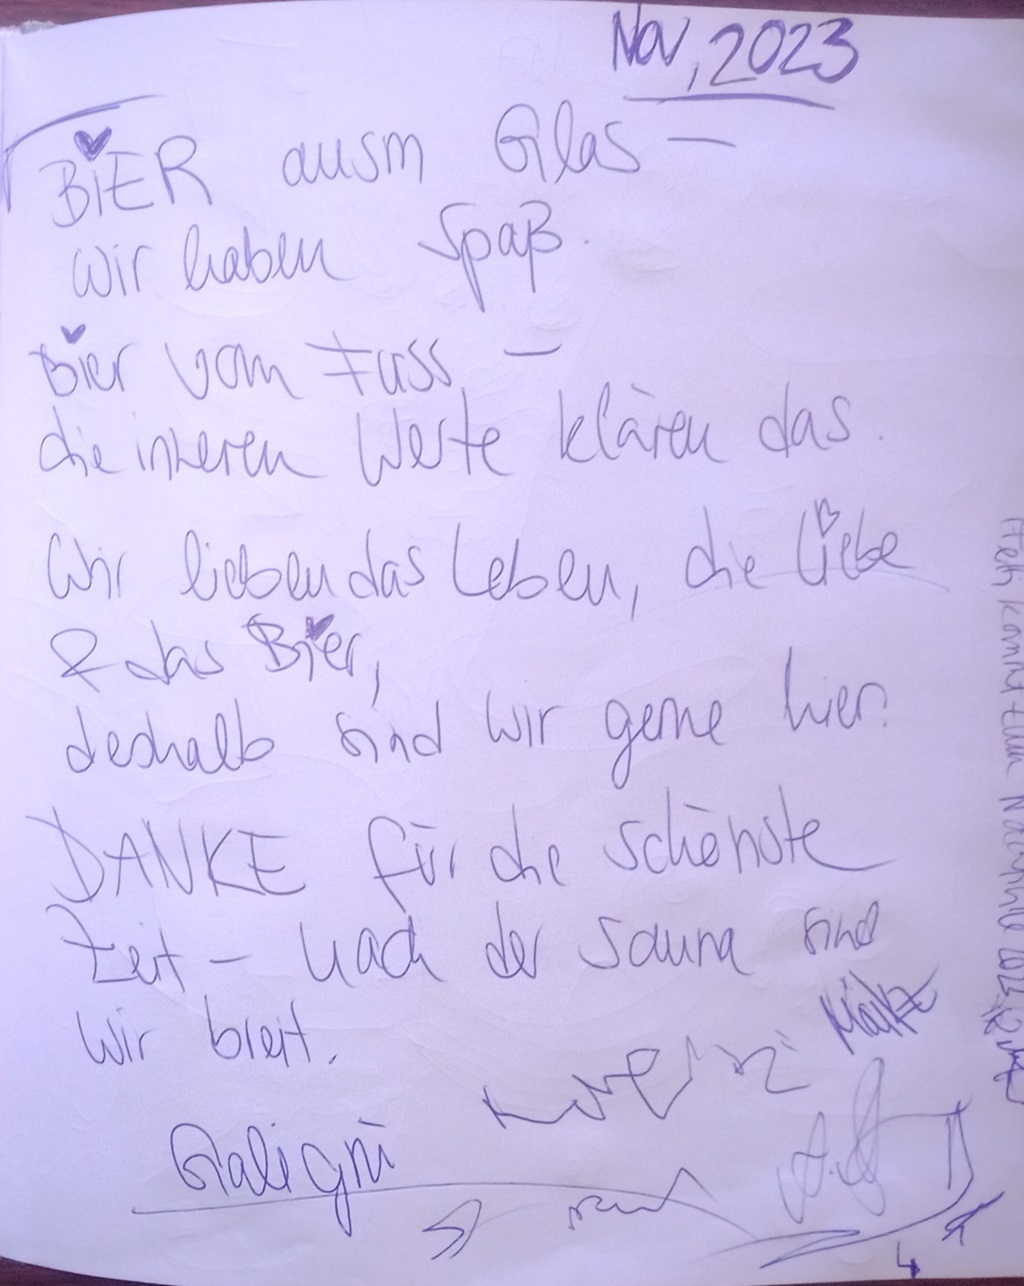 Nov, 2023
BiER ausm Glas –
wir haben Spaß.
Bier vom Fass –
die inneren Werte klären das.
Wir lieben das Leben, die Liebe
& das Bier,
deshalb sind wir gerne hier.
DANKE für die schönste
Zeit – nach der Sauna sind
wir breit.